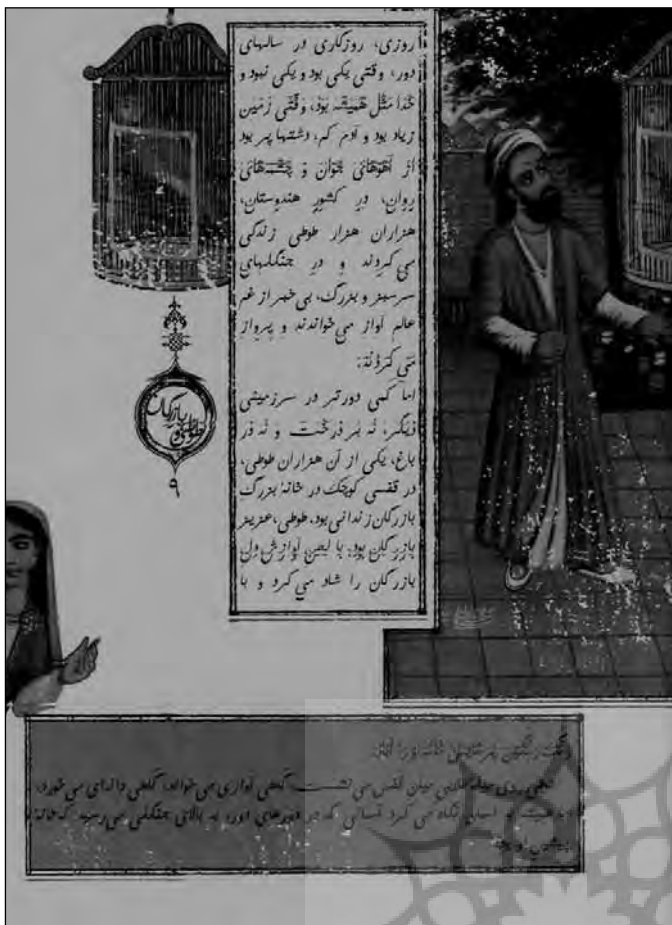 روزی، روزگاری در سالهای
دور، وقتی یکی بود و یکی نبود و
خدا مثل همیشه بود، وقتی زمین
زیاد بود و آدم کم، دشتها پر بود
از آهوهای جوان و چشمه‌های
روان، در کشور هندوستان،
هزاران هزار طوطی زندگی
می‌کردند و در جنگلهای
سرسبز و بزرگ، بی‌خبر از غم
عالم آواز می‌خواندند و پرواز
می‌کردند.
اما کمی دورتر در سرزمینی
دیگر، نه بر درخت و نه در
باغ، یکی از آن هزاران طوطی،
در قفسی کوچک در خانهٔ بزرگ
بازرگان زندانی بود. طوطی، عزیز
بازرگان بود. با لحن آوازش دل
بازرگان را شاد می‌کرد و با
طوطی و بازرگان
۹
رنگ رنگین پرهایش خانه او را
روی میله طلایی میان قفس می‌نشست، گاهی آوازی می‌خواند، گاهی دانه‌ای می‌خورد،
همیشه به آسمان نگاه می‌کرد آسمانی که در دورهای دور، به بالای جنگلی می‌رسید که خانهٔ